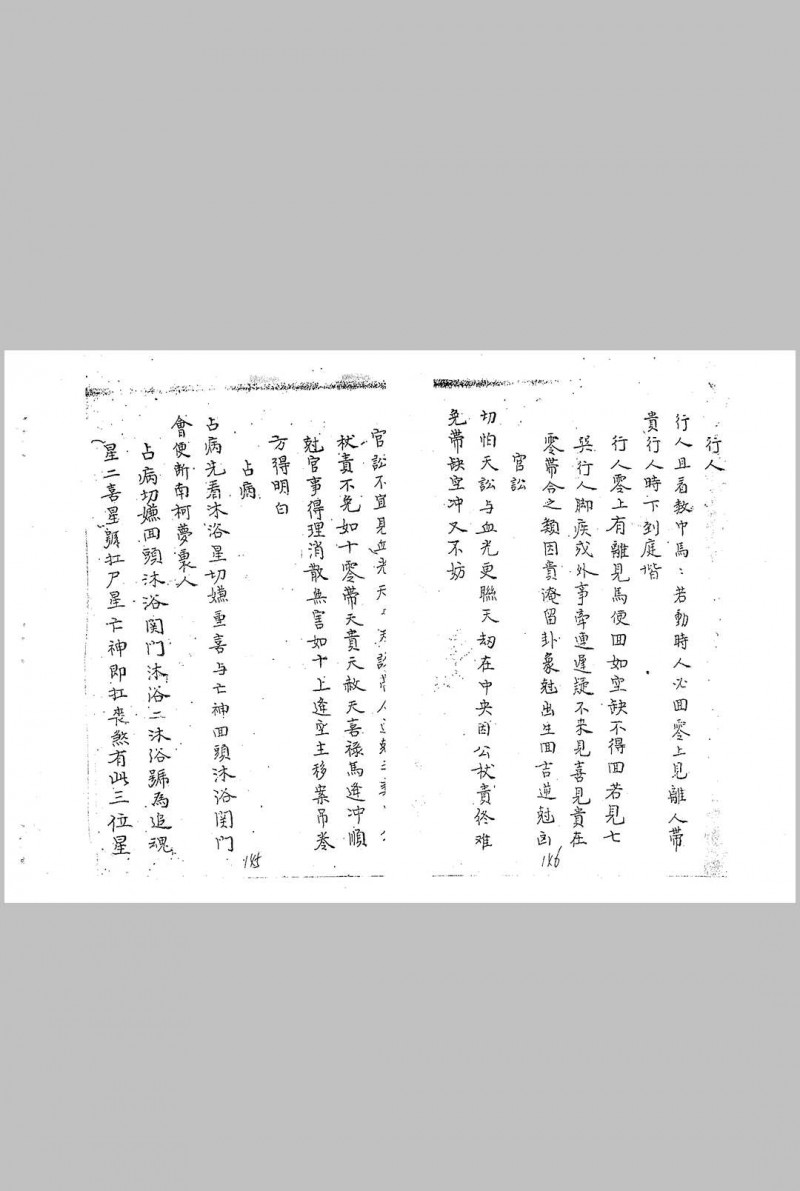 行人
行人且看教中馬：若動時人必回零上見離人帶
貴行人時下到庭堦
行人零上有離見馬便回如空缺不得回若見七
與行人脚疾或外事牽連遲疑不来見喜見貴在
零帶合之類因貴淹留卦象尅出生回吉逆尅凶
官訟
切怕天訟与血光更臨天刼在中央因公杖責终难
免帶缺空冲又不妨
186
官訟不宜見血光天
杖責不免如十零帶天貴天赦天喜禄馬逢冲順
尅官事得理消散無害如十上逢空主移案吊卷
方得明白
占病
占病先看沐浴星切嫌重喜与亡神回頭沐浴関門
會便斬南柯夢裏人
占病切嫌回頭沐浴関門沐浴二沐浴號為追魂
星二喜星號扛尸星亡神即扛喪煞有此三位星
185